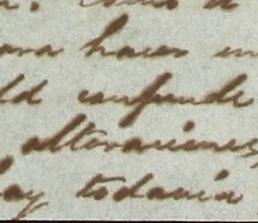 como a
para hacer un
confunde
alteraciones,
hay todavia